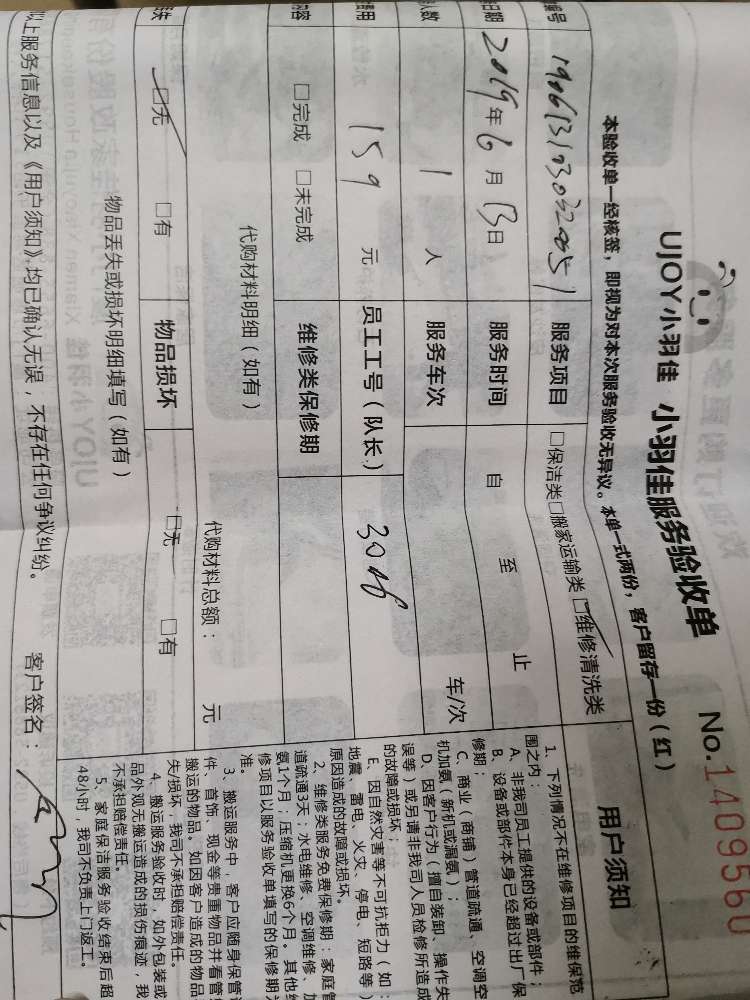 UJOY小羽佳 小羽佳服务验收单 No.1409560
本验收单一经核签，即视为对本次服务验收无异议。本单一式两份，客户留存一份（红）
编号 服务项目 □保洁类□搬家运输类□维修清洗类
日期 2019年6月13日 服务时间 自 至 止
人数 1 人 服务车次 车/次
费用 159 元 员工工号（队长） 3046
内容 □完成 □未完成 维修类保修期
代购材料明细（如有） 代购材料总额： 元
失 □无 □有 物品损坏 □无 □有
物品丢失或损坏明细填写（如有）
以上服务信息以及《用户须知》均已确认无误，不存在任何争议纠纷。 客户签名：
用户须知
1、下列情况不在维修项目的维保范
围之内：
A、非我司员工提供的设备或部件；
B、设备或部件本身已经超过出厂保
修期；
C、商业（商铺）管道疏通、空调空
机加氨（新机或漏氨）；
D、因客户行为（擅自装卸、操作失
误等）或另请非我司人员检修所造成
的故障或损坏；
E、因自然灾害等不可抗拒力（如：
地震、雷电、火灾、停电、短路等）
原因造成的故障或损坏。
2、维修类服务免费保修期：家庭管
道疏通3天；水电维修、空调维修、加
氨1个月；压缩机更换6个月。其他维
修项目以服务验收单填写的保修期为
准。
3、搬运服务中，客户应随身保管
件、首饰、现金等贵重物品并看管
搬运的物品。如因客户造成的物品
失/损坏，我司不承担赔偿责任。
4、搬运服务验收时，如外包装或
品外观无搬运造成的损伤痕迹，我
不承担赔偿责任。
5、家庭保洁服务验收结束后超
48小时，我司不负责上门返工。